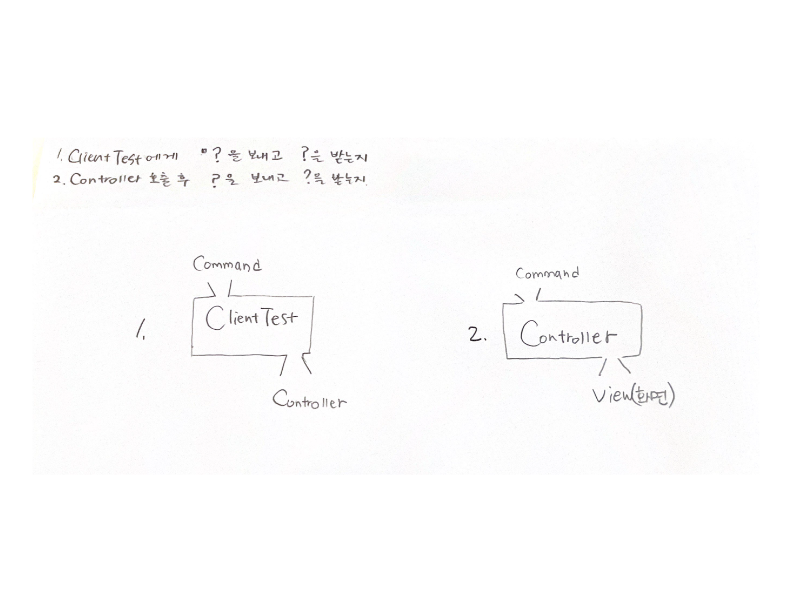 1. Client Test에게 ?을 보내고 ?을 받는지
2. Controller 호출 후 ?을 보내고 ?을 받는지
Command
1.
Client Test
Controller
Command
2.
Controller
View(화면)